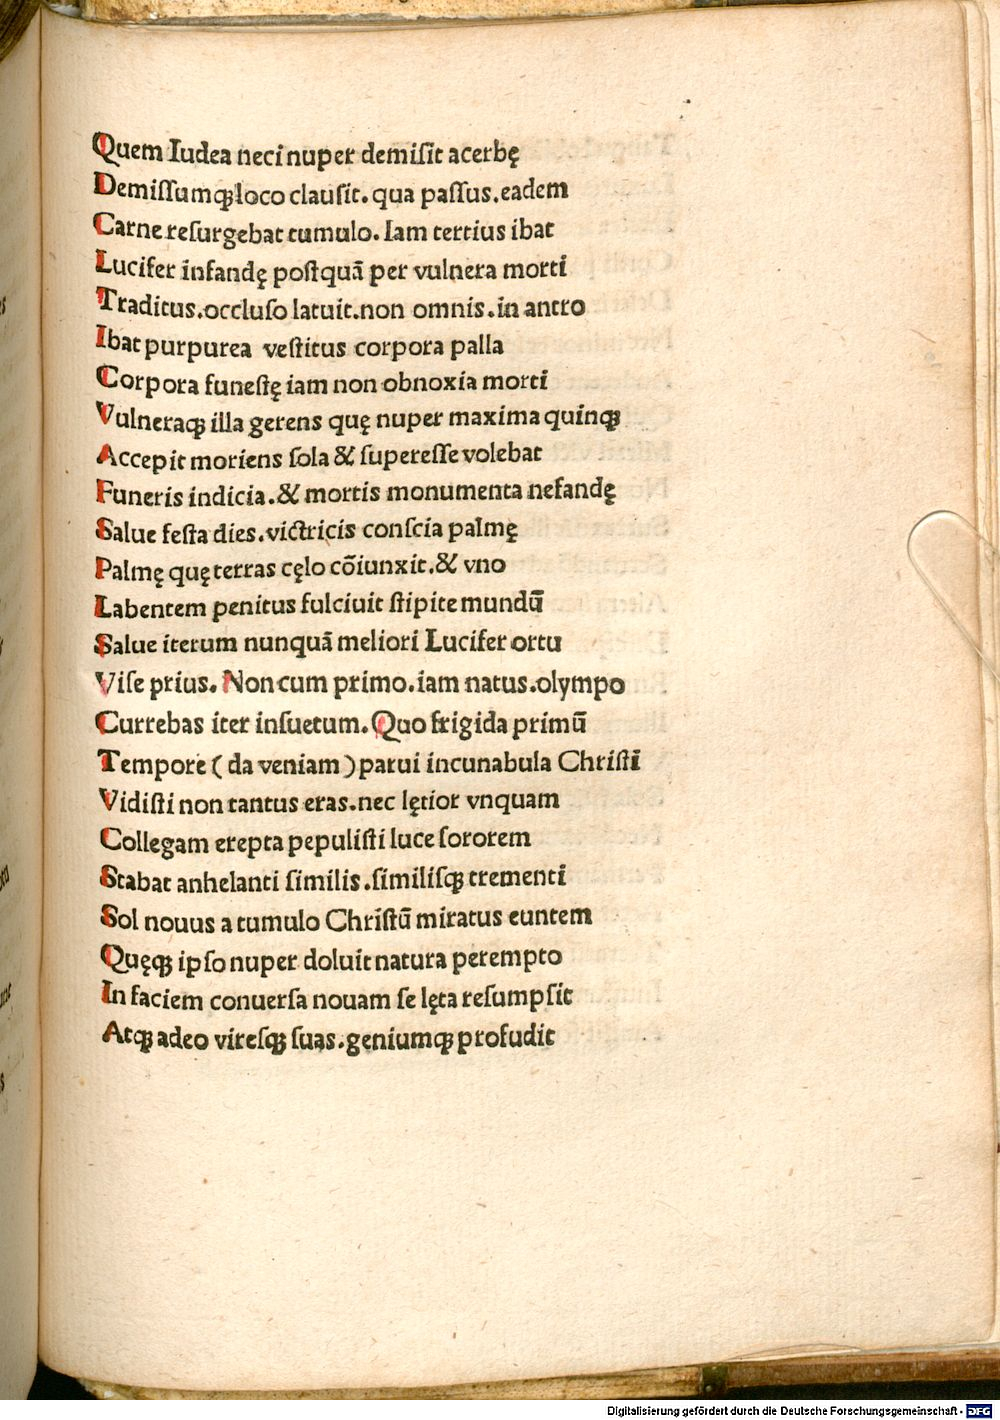 Quem Iudea neci nuper demiſit acerbę
Demiſſumqꝫ loco clauſit. qua paſſus. eadem
Carne reſurgebat tumulo. Iam tertius ibat
Lucifer infandę poſtquā per vulnera morti
Traditus. occluſo latuit. non omnis. in antro
Ibat purpurea veſtitus corpora palla
Corpora funeſtę iam non obnoxia morti
Vulneraqꝫ illa gerens quę nuper maxima quinqꝫ
Accepit moriens ſola & ſupereſſe volebat
Funeris indicia. & mortis monumenta nefandę
Salue feſta dies. victricis conſcia palmę
Palmę quę terras cęlo cōiunxit. & vno
Labentem penitus fulciuit ſtipite mundū
Salue iterum nunquā meliori Lucifer ortu
Viſe prius. Non cum primo. iam natus. olympo
Currebas iter inſuetum. Quo frigida primū
Tempore ( da veniam ) parui incunabula Chriſti
Vidiſti non tantus eras. nec lętior vnquam
Collegam erepta pepuliſti luce ſororem
Stabat anhelanti ſimilis. ſimiliſqꝫ trementi
Sol nouus a tumulo Chriſtū miratus euntem
Quęqꝫ ipſo nuper doluit natura perempto
In faciem conuerſa nouam ſe lęta reſumpſit
Atqꝫ adeo vireſqꝫ ſuas. geniumqꝫ profudit
Digitalisierung gefördert durch die Deutsche Forschungsgemeinschaft - DFG